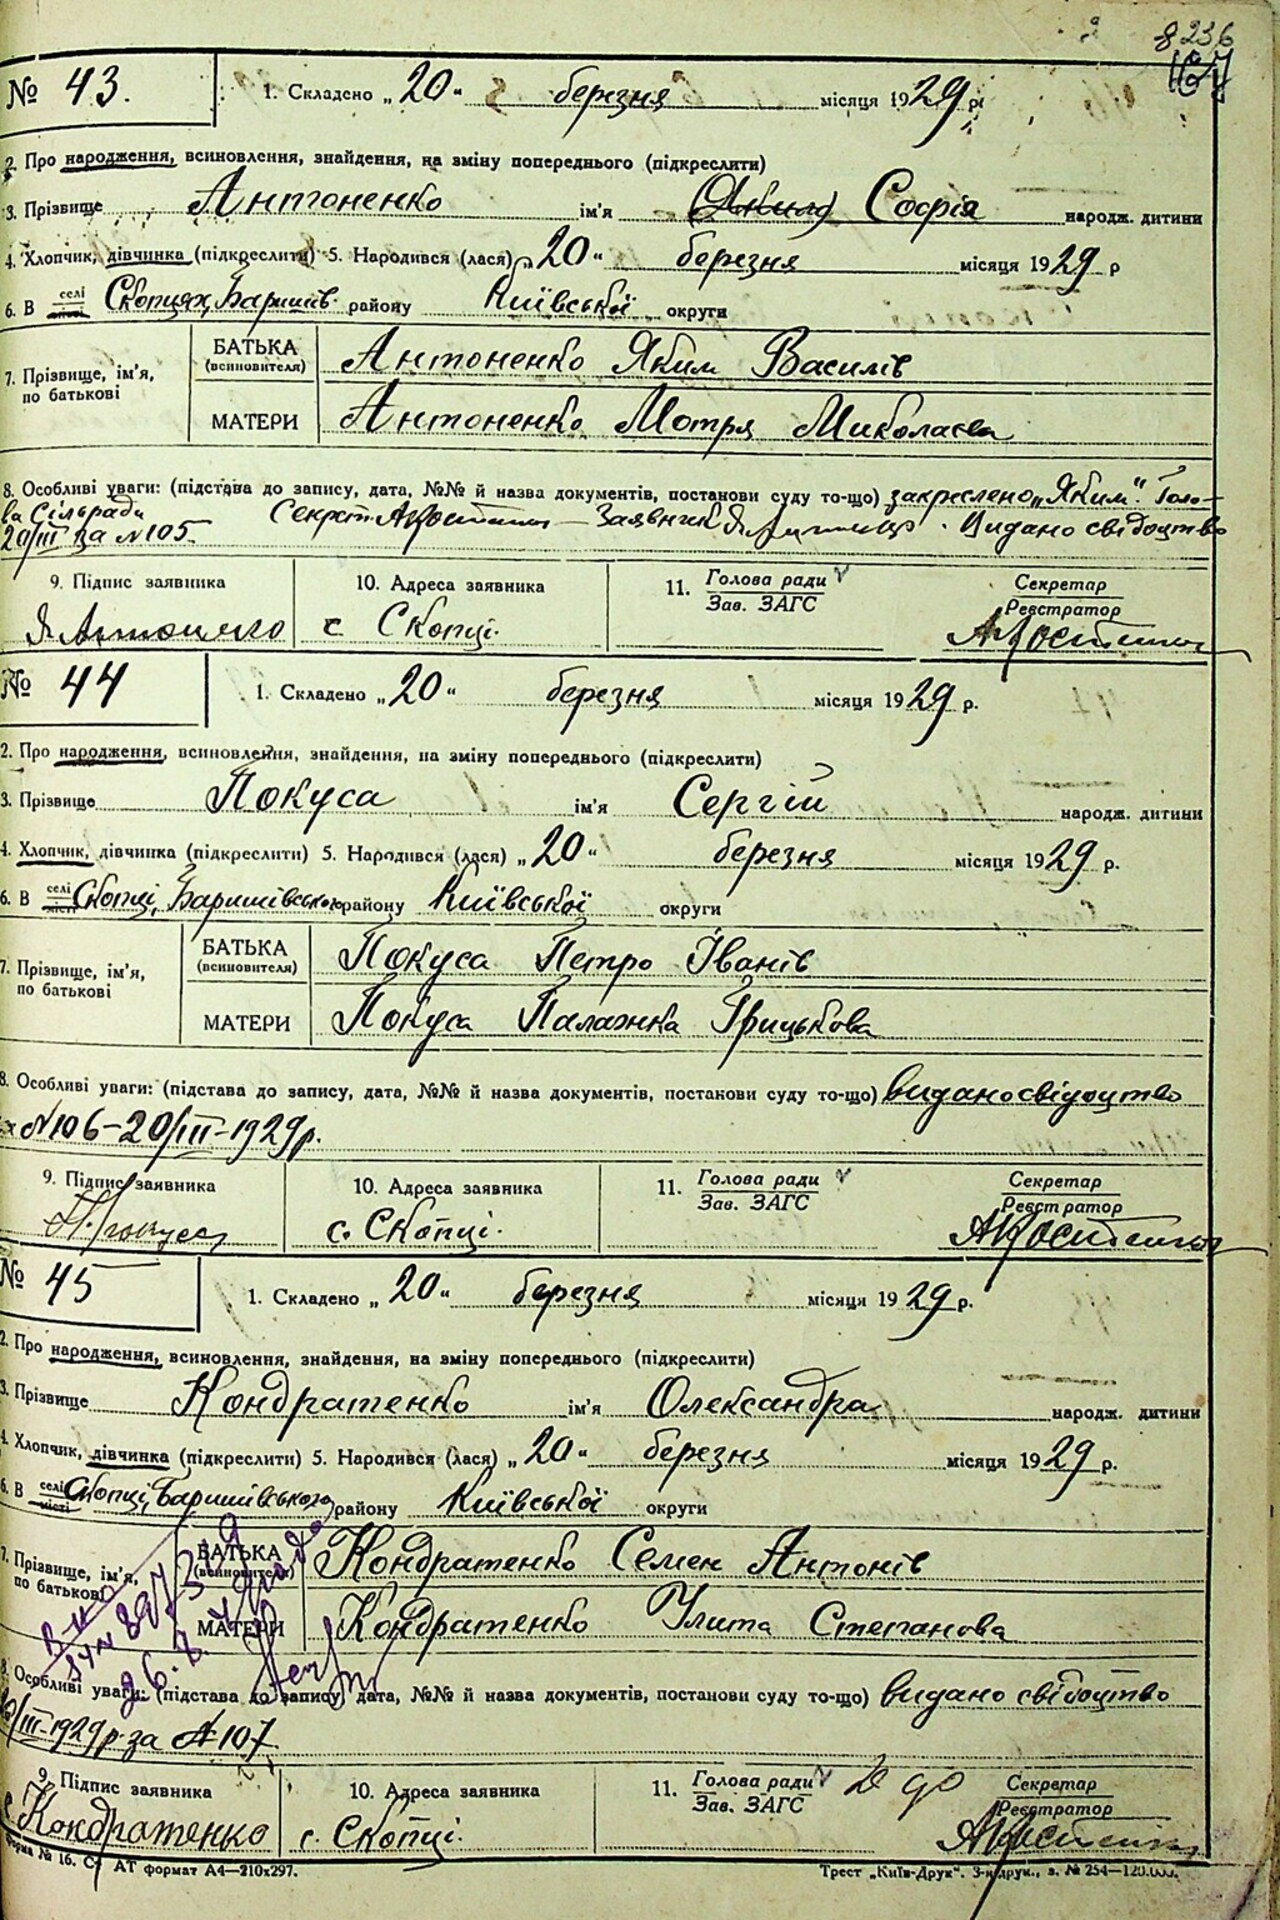 8236
№ 43. 1. Складено „20“ березня місяця 1929 р.
2. Про народження, всиновлення, знайдення, на зміну попереднього (підкреслити)
3. Прізвище Антоненко ім'я (Яким) Софія народж. дитини
4. Хлопчик, дівчинка (підкреслити) 5. Народився (лася) „20“ березня місяця 1929 р
6. В селі місті Скопцях, Баришів. району Київської округи
7. Прізвище, ім'я, по батькові БАТЬКА (всиновителя) Антоненко Яким Василів
МАТЕРИ Антоненко Мотря Миколаєва
8. Особливі уваги: (підстава до запису, дата, №№ й назва документів, постанови суду то-що) закреслено „Яким“. Голо-
ва Сільради Секрет. Заявник Видано свідоцтво
20/III за №105.
9. Підпис заявника 10. Адреса заявника 11. Голова ради Секретар
Зав. ЗАГС Реєстратор
Я Антоненко с Скопці.
№ 44 1. Складено „20“ березня місяця 1929 р.
2. Про народження, всиновлення, знайдення, на зміну попереднього (підкреслити)
3. Прізвище Покуса ім'я Сергій народж. дитини
4. Хлопчик, дівчинка (підкреслити) 5. Народився (лася) „20“ березня місяця 1929 р.
6. В селі місті Скопці, Баришівського району Київської округи
7. Прізвище, ім'я, по батькові БАТЬКА (всиновителя) Покуса Петро Іванів
МАТЕРИ Покуса Палажка Грицькова
8. Особливі уваги: (підстава до запису, дата, №№ й назва документів, постанови суду то-що) видано свідоцтво
№106-20/III-1929р.
9. Підпис заявника 10. Адреса заявника 11. Голова ради Секретар
Зав. ЗАГС Реєстратор
П. Покуса с. Скопці.
№ 45 1. Складено „20“ березня місяця 1929 р.
2. Про народження, всиновлення, знайдення, на зміну попереднього (підкреслити)
3. Прізвище Кондратенко ім'я Олександра народж. дитини
4. Хлопчик, дівчинка (підкреслити) 5. Народився (лася) „20“ березня місяця 1929 р.
6. В селі місті Скопці, Баришівського району Київської округи
7. Прізвище, ім'я, по батькові БАТЬКА (всиновителя) Кондратенко Семен Антонів
МАТЕРИ Кондратенко Улита Степанова
8. Особливі уваги: (підстава до запису, дата, №№ й назва документів, постанови суду то-що) видано свідоцтво
20/III-1929р. за №107.
9. Підпис заявника 10. Адреса заявника 11. Голова ради Секретар
Зав. ЗАГС Реєстратор
с. Кондратенко с. Скопці.
Форма № 16. АТ формат А4—210х297. Трест „Київ-Друк“. 3-я друк., з. № 254—120.000.